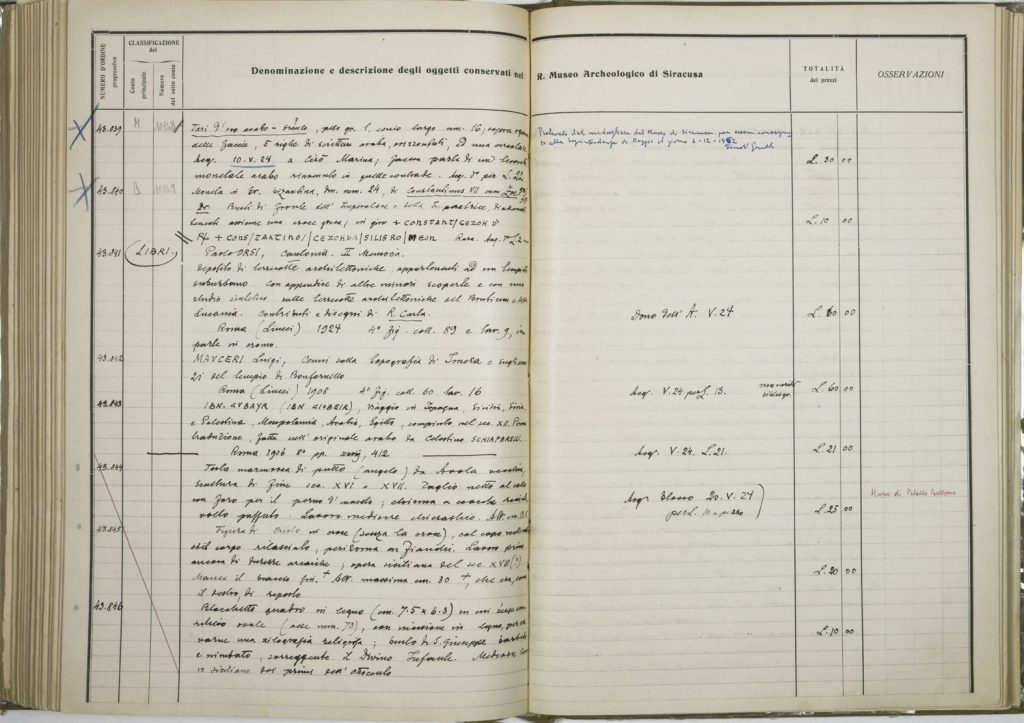 NUMERO D'ORDINE
progressivo
CLASSIFICAZIONE
del
Conto
principale
Numero
del sotto conto
Denominazione e descrizione degli oggetti conservati nel R. Museo Archeologico di Siracusa
TOTALITÀ
dei prezzi
OSSERVAZIONI
43.839 M
Tarì d'oro arabo-, peso gr. 1, conio largo mm. 16;
delle facce, 5 righe di scrittura araba, orizzontali, ed una circolare
Acq. 10. V. 24 a Cirò Marina, faceva parte di un
monetale arabo rinvenuto in quelle contrade. Acq. per L. 22
Prelevato dal medagliere del Museo di Siracusa per essere
alla Soprintendenza di Reggio il giorno 2-12-
L. 30 00
43.840 B
Moneta in br. bizantina, dm. mm. 24, di Constantinus VII con Zoe
Dr. Busti di fronte dell'Imperatore e della Imperatrice,
una croce; in giro + CONSTANT/CEZOH
+ CONS/TANTINO/CEZOHBA/SILISRO/MEON
L. 10 00
43.841 LIBRI.
Paolo ORSI, Caulonia. II Memoria.
Deposito di terrecotte architettoniche appartenenti ad un tempio
suburbano con appendice di altre minori scoperte e con uno
studio sintetico sulle terrecotte architettoniche del Bruttium e della
Lucania. Contributi e disegni di R. Carta.
Roma (Lincei) 1924 4° fig. coll. 89 e tav. 9, in
parte in cromo.
Dono dell'A. V. 24
L. 60 00
43.842
MAUCERI Luigi, Cenni sulla topografia di Imera e sugli avan
zi del tempio di Bonfornello
Roma (Lincei) 1908 4° fig. coll. 60 tav. 16
Acq. V. 24 per L. 15.
L. 60 00
43.843
IBN-GUBAYR (IBN GIOBEIR), Viaggio in Ispagna, Sicilia, Siria
e Palestina, Mesopotamia, Arabia, Egitto, compiuto nel sec. XII. Prima
traduzione, fatta sull'originale arabo da Celestino SCHIAPARELLI.
Roma 1906 8° pp. 412
Acq. V. 24. L. 21.
L. 21 00
43.844
Testa marmorea di putto (angelo) da Avola vecchia,
scultura di fine sec. XVI o XVII. Taglio netto al collo
con foro per il perno d'innesto; chioma a ciocche
volto paffuto. Lavoro mediocre
Acq. Blocco 20. V. 24
per L. 10 a pezzo
L. 25 00
Museo di Palazzo Bellomo
43.845
Figura di Cristo in croce (senza la croce), col capo
ed il corpo rilasciato, perizoma Lavoro
ancora di durezze arcaiche; opera siciliana del sec. XVII (?)
Manca il braccio Alt. massima cm. 30
il destro, di reporto
L. 20 00
43.846
Blocchetto quadro in legno (cm. 7.5 x 6.3) in cui
rilievo ovale (asse mm. 73), con incisione in legno, per
varne una xilografia religiosa; busto di S. Giuseppe barbato
e nimbato, sorreggente il Divino Infante. Mediocre
ro siciliano dei primi dell'ottocento
L. 10 00